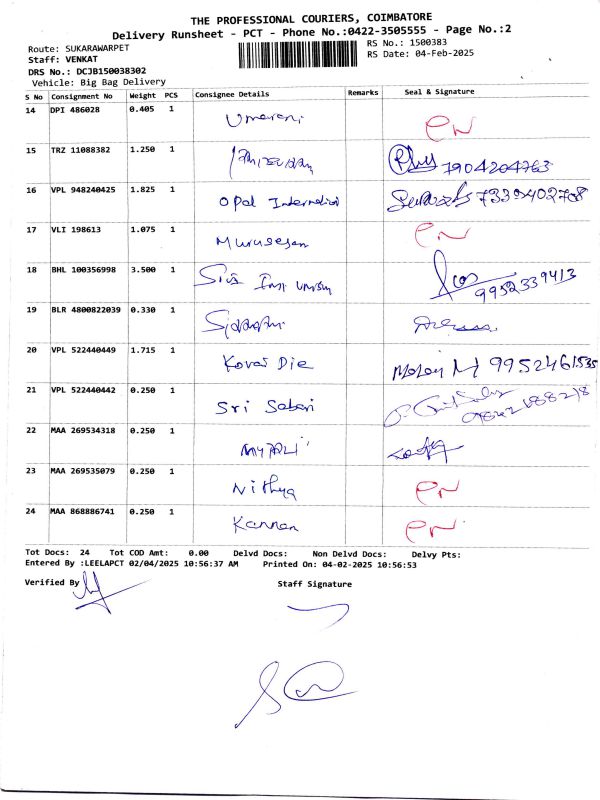 THE PROFESSIONAL COURIERS, COIMBATORE
Delivery Runsheet - PCT - Phone No.:0422-3505555 - Page No.:2
Route: SUKARAWARPET
RS No.: 1500383
Staff: VENKAT
RS Date: 04-Feb-2025
DRS No.: DCJB150038302
Vehicle: Big Bag Delivery
S No Consignment No Weight PCS Consignee Details Remarks Seal & Signature
14 DPI 486028 0.405 1 Umarani PN
15 TRZ 11088382 1.250 1 7904204763
16 VPL 948240425 1.825 1 Opal 7339402708
17 VLI 198613 1.075 1 Murugesan PN
18 BHL 100356998 3.500 1 9952339413
19 BLR 4800822039 0.330 1
20 VPL 522440449 1.715 1 Kovai Die 9952461535
21 VPL 522440442 0.250 1 Sri Sabari
22 MAA 269534318 0.250 1
23 MAA 269535079 0.250 1 Nithya PN
24 MAA 868886741 0.250 1 Kannan PN
Tot Docs: 24 Tot COD Amt: 0.00 Delvd Docs: Non Delvd Docs: Delvy Pts:
Entered By :LEELAPCT 02/04/2025 10:56:37 AM Printed On: 04-02-2025 10:56:53
Verified By Staff Signature